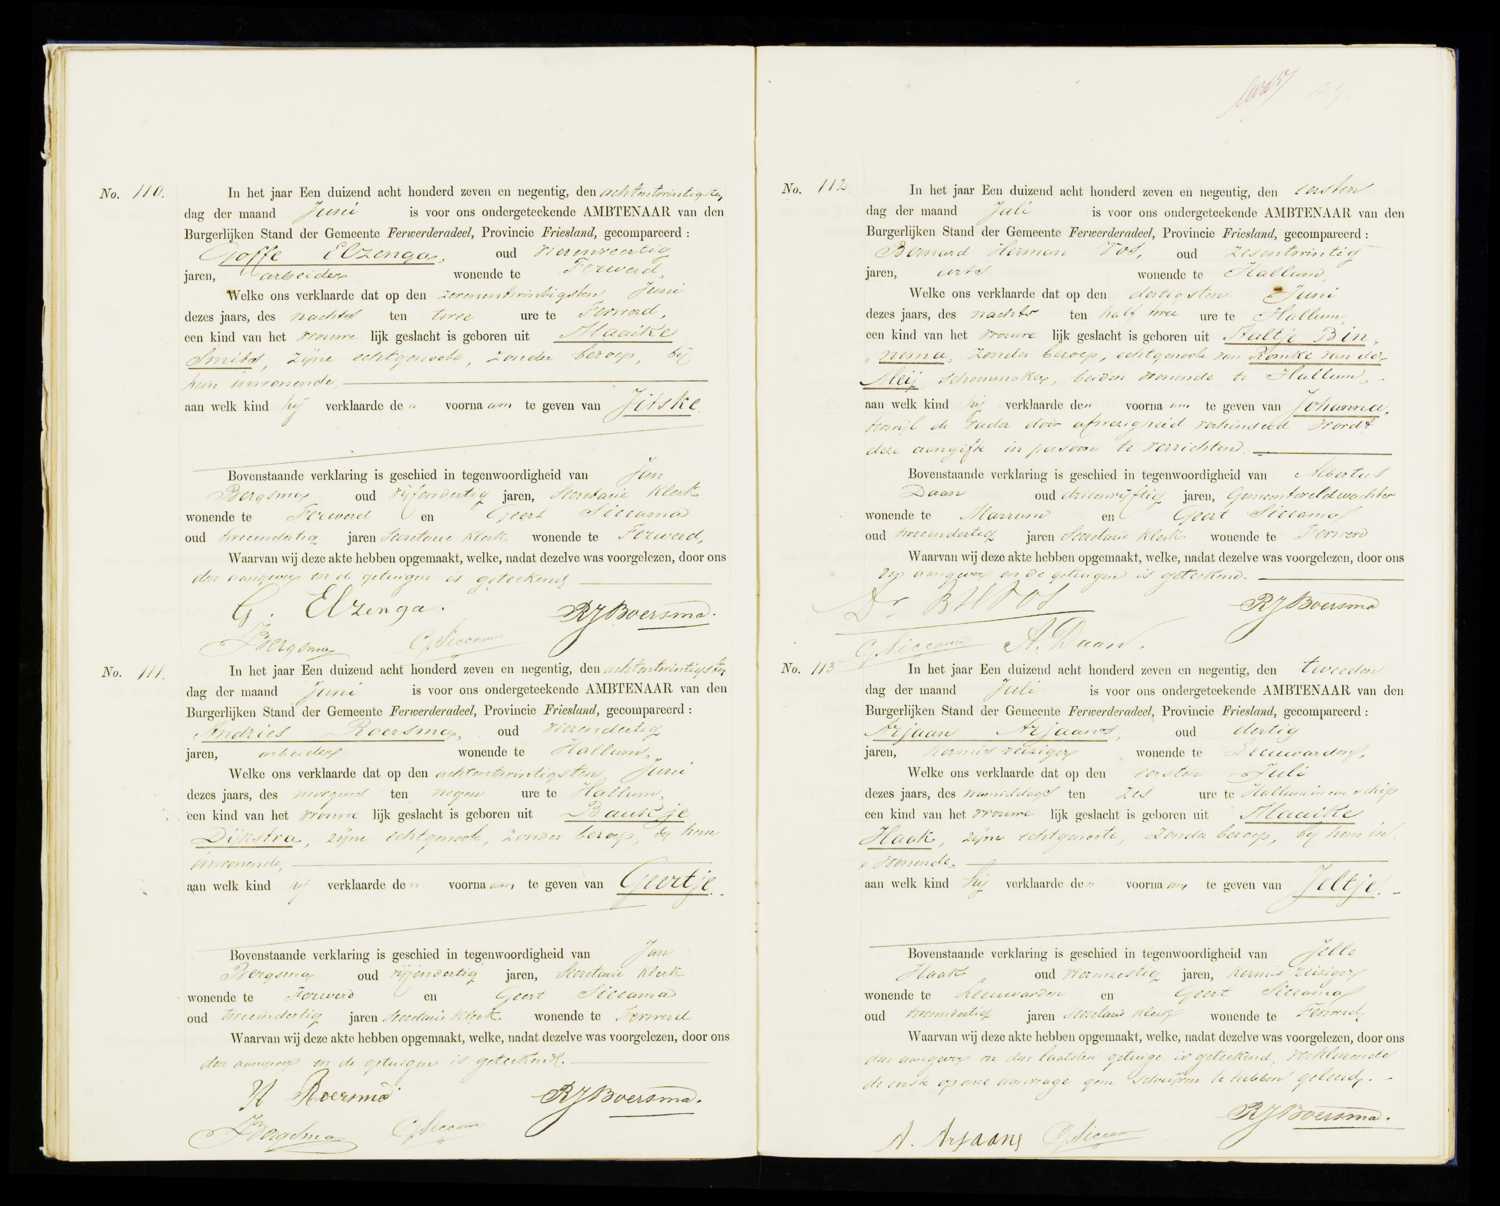 No. 110.
In het jaar Een duizend acht honderd zeven en negentig, den achtentwintigsten
dag der maand Juni is voor ons ondergeteekende AMBTENAAR van den
Burgerlijken Stand der Gemeente Ferwerderadeel, Provincie Friesland, gecompareerd:
Goffe Elzenga, oud vierenveertig
jaren, arbeider wonende te Ferwerd,
Welke ons verklaarde dat op den zevenentwintigsten Juni
dezes jaars, des nachts ten twee ure te Ferwerd,
een kind van het vrouwe lijk geslacht is geboren uit Maaike
Smids, zijne echtgenoote, zonder beroep, bij
hem inwonende,
aan welk kind hij verklaarde de n voorna am te geven van Jitske
Bovenstaande verklaring is geschied in tegenwoordigheid van Jan
Bergsma oud vijfendertig jaren, Secretarie klerk
wonende te Ferwerd en Geert Siccama
oud tweeendertig jaren Secretarie klerk wonende te Ferwerd,
Waarvan wij deze akte hebben opgemaakt, welke, nadat dezelve was voorgelezen, door ons
den aangever en de getuigen is geteekend,
G. Elzenga. RJBoersma.
JBergsma GSiccama
No. 111.
In het jaar Een duizend acht honderd zeven en negentig, den achtentwintigsten
dag der maand Juni is voor ons ondergeteekende AMBTENAAR van den
Burgerlijken Stand der Gemeente Ferwerderadeel, Provincie Friesland, gecompareerd:
Andries Roersma, oud vierendertig
jaren, arbeider wonende te Hallum,
Welke ons verklaarde dat op den achtentwintigsten Juni
dezes jaars, des morgens ten negen ure te Hallum,
een kind van het vrouwe lijk geslacht is geboren uit Baukje
Dijkstra, zijne echtgenoote, zonder beroep, bij hem
inwonende,
aan welk kind hij verklaarde de n voorna am te geven van Geertje.
Bovenstaande verklaring is geschied in tegenwoordigheid van Jan
Bergsma oud vijfendertig jaren, Secretarie klerk
wonende te Ferwerd en Geert Siccama
oud tweeendertig jaren Secretarie klerk wonende te Ferwerd
Waarvan wij deze akte hebben opgemaakt, welke, nadat dezelve was voorgelezen, door ons
den aangever en de getuigen is geteekend.
Roersma RJBoersma.
JBergsma GSiccama
No. 112
In het jaar Een duizend acht honderd zeven en negentig, den eersten
dag der maand Juli is voor ons ondergeteekende AMBTENAAR van den
Burgerlijken Stand der Gemeente Ferwerderadeel, Provincie Friesland, gecompareerd:
Bernard Herman Vos, oud zesentwintig
jaren, arts wonende te Hallum,
Welke ons verklaarde dat op den dertigsten Juni
dezes jaars, des nachts ten half twee ure te Hallum,
een kind van het vrouwe lijk geslacht is geboren uit Aaltje Bin
nema, zonder beroep, echtgenoote van Romke van der
Meij schoenmaker, beiden wonende te Hallum,
aan welk kind hij verklaarde de n voorna am te geven van Johanna,
terwijl de vader door afwezigheid verhinderd wordt
deze aangifte in persoon te verrichten.
Bovenstaande verklaring is geschied in tegenwoordigheid van Albertus
Daan oud drieenvijftig jaren, Gemeenteveldwachter
wonende te Marrum en Geert Siccama
oud tweeendertig jaren Secretarie klerk wonende te Ferwerd
Waarvan wij deze akte hebben opgemaakt, welke, nadat dezelve was voorgelezen, door ons
den aangever en de getuigen is geteekend.
Dr BHVos RJBoersma
GSiccama A. Daan.
No. 113
In het jaar Een duizend acht honderd zeven en negentig, den tweeden
dag der maand Juli is voor ons ondergeteekende AMBTENAAR van den
Burgerlijken Stand der Gemeente Ferwerderadeel, Provincie Friesland, gecompareerd:
Arjaan Arjaans, oud dertig
jaren, kermis reiziger wonende te Leeuwarden,
Welke ons verklaarde dat op den eersten Juli
dezes jaars, des namiddags ten zes ure te Hallum in een schip
een kind van het vrouwe lijk geslacht is geboren uit Maaike
Haak, zijne echtgenoote, zonder beroep, bij hem in
wonende,
aan welk kind hij verklaarde de n voorna am te geven van Jeltje.
Bovenstaande verklaring is geschied in tegenwoordigheid van Jelle
Haak oud jaren, kermis reiziger
wonende te Leeuwarden en Geert Siccama
oud tweeendertig jaren Secretarie klerk wonende te Ferwerd,
Waarvan wij deze akte hebben opgemaakt, welke, nadat dezelve was voorgelezen, door ons
den aangever en den laatsten getuige is geteekend, verklarende
de eerste op onze aanvrage geen schrijven te hebben geleerd.
RJBoersma.
A. Arjaans GSiccama